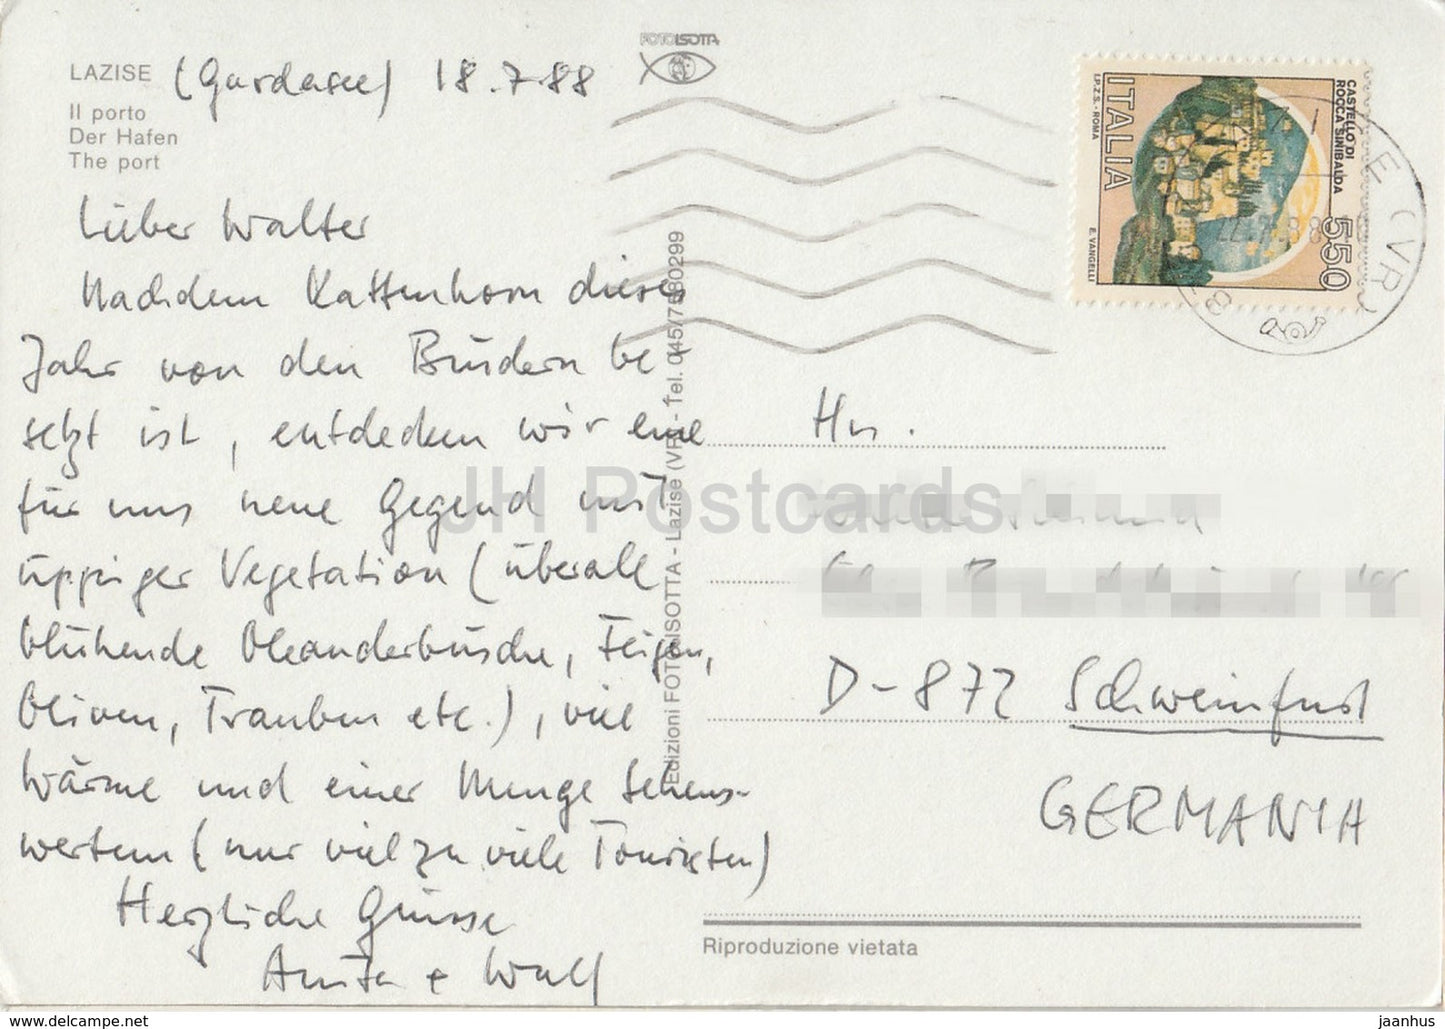 FOTOISOTTA
LAZISE (Gardasee) 18.7.88
Il porto
Der Hafen
The port
Lieber Walter
Nachdem Kattenhorn dieses
Jahr von den Brüdern be
setzt ist, entdecken wir eine
für uns neue Gegend mit
üppiger Vegetation (überall
blühende Oleanderbüsche, Feigen,
Oliven, Trauben etc.), viel
Wärme und einer Menge Sehens-
wertem (nur viel zu viele Touristen)
Herzliche Grüsse
Anita + Wulf
Edizioni FOTOISOTTA - Lazise (VR) - Tel. 045/7580299
ITALIA
I.P.Z.S. - ROMA
CASTELLO DI
ROCCA SINIBALDA
550
E. VANGELLI
Hrn.
D-872 Schweinfurt
GERMANIA
Riproduzione vietata
JH Postcards
www.delcampe.net
jaanhus